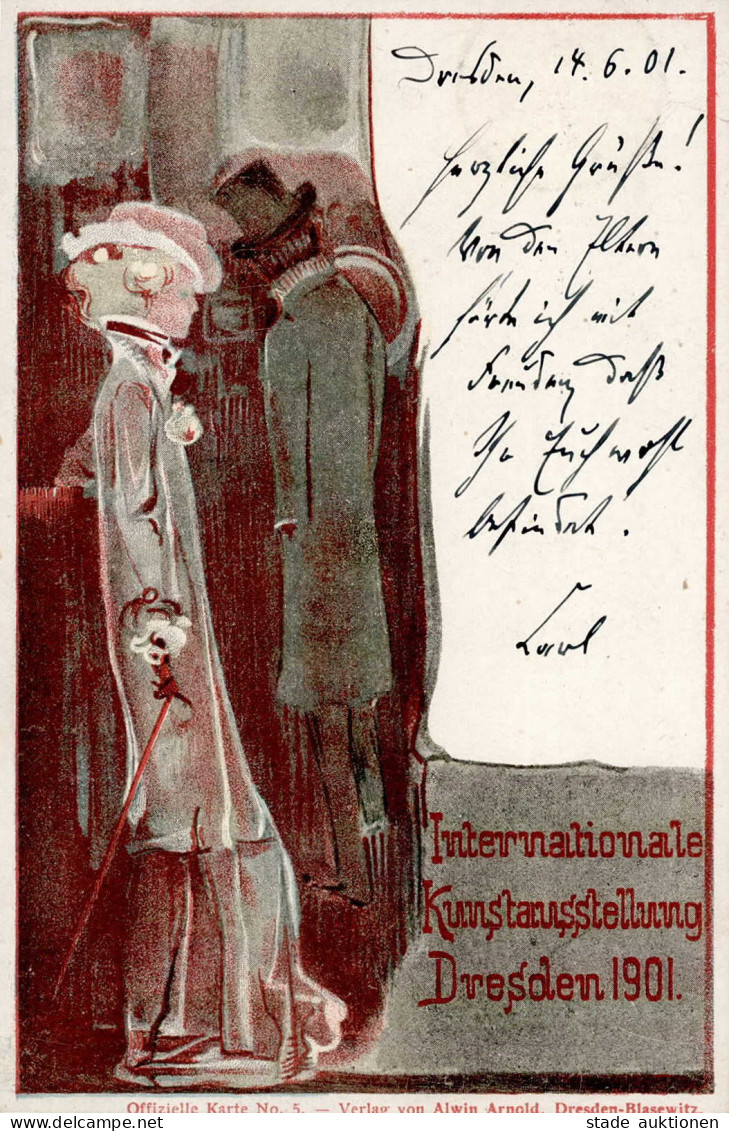 Dresden, 14.6.01.
Herzliche Grüße!
Von den Eltern
höre ich mit
Freuden, daß
Ihr Euch wohl
befindet.
Karl
Internationale
Kunstausstellung
Dresden 1901.
Offizielle Karte No. 5. — Verlag von Alwin Arnold, Dresden-Blasewitz.
delcampe.net
stade auktionen